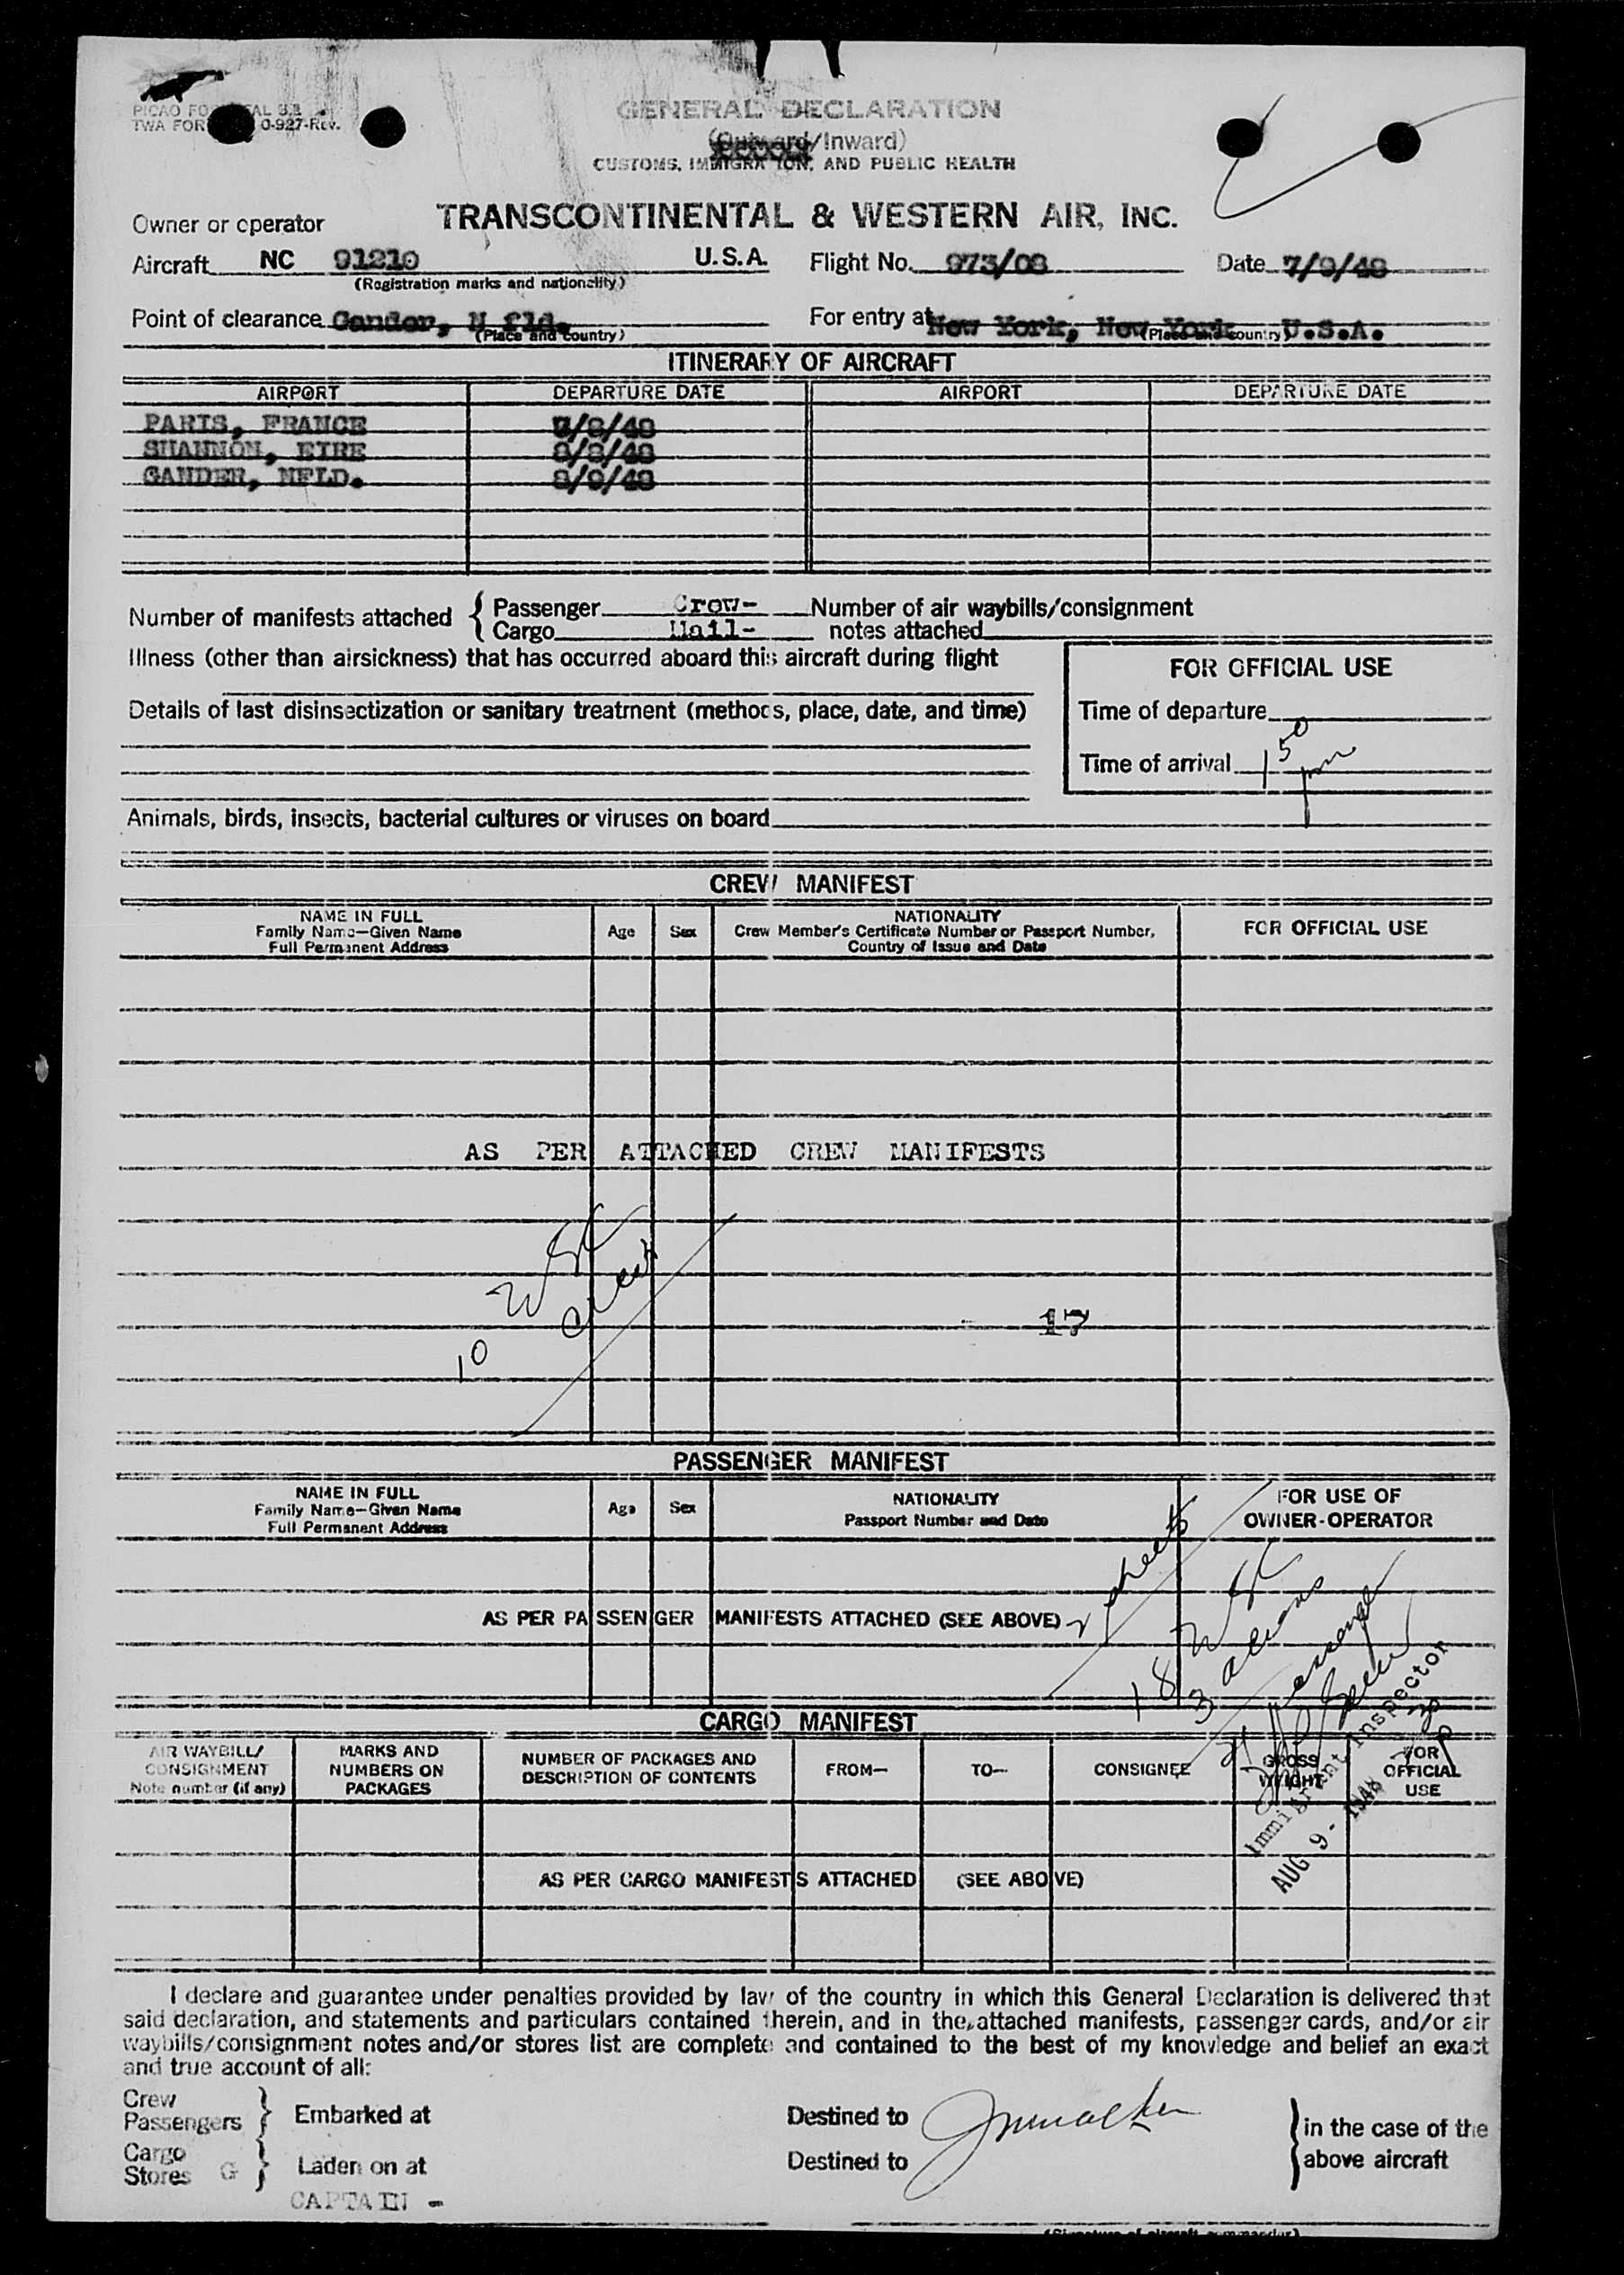 TWA FOR 0-927-Rev.
GENERAL DECLARATION
(Outward/Inward)
CUSTOMS, IMMIGRATION, AND PUBLIC HEALTH
Owner or operator TRANSCONTINENTAL & WESTERN AIR, INC.
Aircraft NC 91210 U.S.A. Flight No. 973/08 Date 7/9/48
(Registration marks and nationality)
Point of clearance Gander, N fld. For entry at New York, New York U.S.A.
(Place and country) (Place and country)
ITINERARY OF AIRCRAFT
AIRPORT DEPARTURE DATE AIRPORT DEPARTURE DATE
PARIS, FRANCE /8/48
SHANNON, EIRE 8/8/48
GANDER, NFLD. 8/9/48
Number of manifests attached { Passenger Crew- Number of air waybills/consignment
Cargo Mail- notes attached
Illness (other than airsickness) that has occurred aboard this aircraft during flight
FOR OFFICIAL USE
Details of last disinsectization or sanitary treatment (methods, place, date, and time)
Time of departure
Time of arrival 1 50 pm
Animals, birds, insects, bacterial cultures or viruses on board
CREW MANIFEST
NAME IN FULL
Family Name—Given Name
Full Permanent Address
Age Sex
NATIONALITY
Crew Member's Certificate Number or Passport Number,
Country of Issue and Date
FOR OFFICIAL USE
AS PER ATTACHED CREW MANIFESTS
10 USC
crew
17
PASSENGER MANIFEST
NAME IN FULL
Family Name—Given Name
Full Permanent Address
Age Sex
NATIONALITY
Passport Number and Date
FOR USE OF
OWNER-OPERATOR
AS PER PASSENGER MANIFESTS ATTACHED (SEE ABOVE)
2 sheets
18 USC
3 aliens
21 passengers
Immigrant Inspector
AUG 9 - 1948
CARGO MANIFEST
AIR WAYBILL/
CONSIGNMENT
Note number (if any)
MARKS AND
NUMBERS ON
PACKAGES
NUMBER OF PACKAGES AND
DESCRIPTION OF CONTENTS
FROM— TO— CONSIGNEE
GROSS
WEIGHT
FOR
OFFICIAL
USE
AS PER CARGO MANIFESTS ATTACHED (SEE ABOVE)
I declare and guarantee under penalties provided by law of the country in which this General Declaration is delivered that
said declaration, and statements and particulars contained therein, and in the attached manifests, passenger cards, and/or air
waybills/consignment notes and/or stores list are complete and contained to the best of my knowledge and belief an exact
and true account of all:
Crew
Passengers } Embarked at Destined to } in the case of the
Cargo
Stores G } Laden on at Destined to above aircraft
CAPTAIN -
(Signature of aircraft commander)